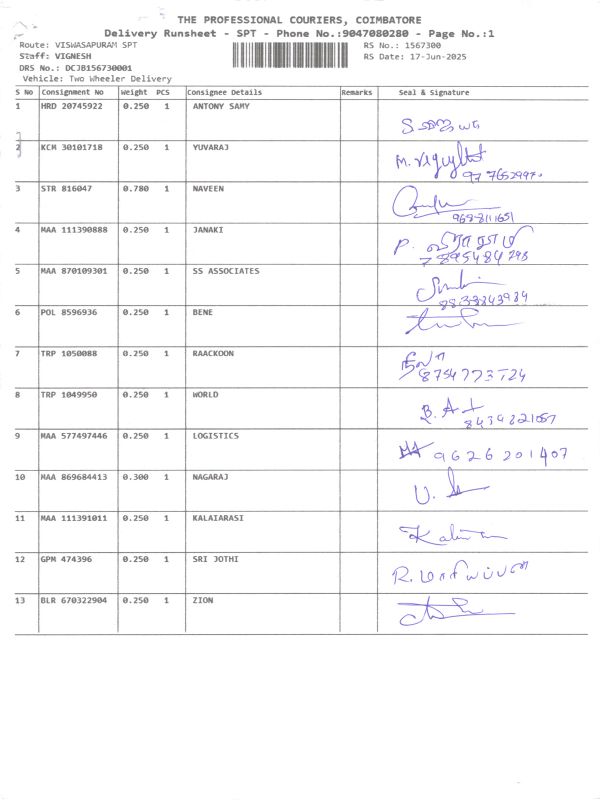 THE PROFESSIONAL COURIERS, COIMBATORE
Delivery Runsheet - SPT - Phone No.:9047080280 - Page No.:1
Route: VISWASAPURAM SPT RS No.: 1567300
Staff: VIGNESH RS Date: 17-Jun-2025
DRS No.: DCJB156730001
Vehicle: Two Wheeler Delivery
S No Consignment No Weight PCS Consignee Details Remarks Seal & Signature
1 HRD 20745922 0.250 1 ANTONY SAMY
2 KCM 30101718 0.250 1 YUVARAJ
3 STR 816047 0.780 1 NAVEEN
4 MAA 111390888 0.250 1 JANAKI P.
7895484293
5 MAA 870109301 0.250 1 SS ASSOCIATES
8833843984
6 POL 8596936 0.250 1 BENE
7 TRP 1050088 0.250 1 RAACKOON
8754773724
8 TRP 1049950 0.250 1 WORLD
9 MAA 577497446 0.250 1 LOGISTICS 9626201407
10 MAA 869684413 0.300 1 NAGARAJ
11 MAA 111391011 0.250 1 KALAIARASI
12 GPM 474396 0.250 1 SRI JOTHI R. மாரியப்பன்
13 BLR 670322904 0.250 1 ZION